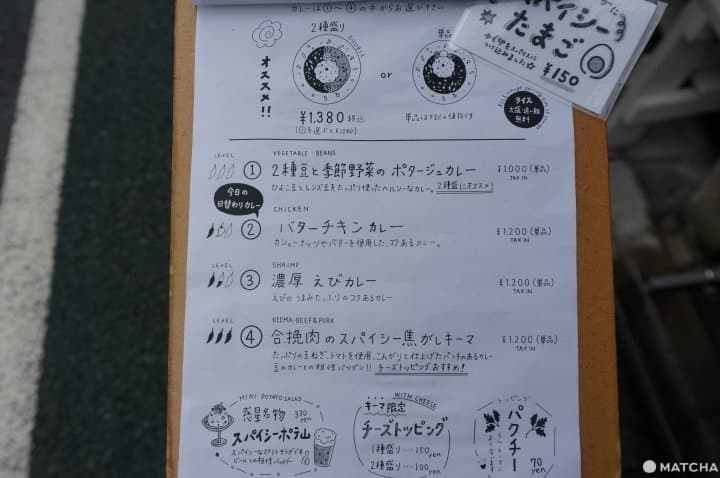 カレーは①〜④の中からお選び下さい
スパイシー
たまご
¥150
2種盛り
DOUBLE
オススメ!!
or
単品
¥1,380 税込
単品は下記の価格です
ライス
大盛・追い飯
無料
LEVEL
VEGETABLE・BEANS
① 2種豆と季節野菜の ポタージュカレー
¥1.000(単品)
TAX IN
ひよこ豆とレンズ豆をたっぷり使ったヘルシーなカレー。2種盛にオススメ!
今日の
日替わりカレー
CHICKEN
② バターチキンカレー
¥1.200(単品)
TAX IN
カシューナッツやバターを使用した、コクあるカレー。
LEVEL
SHRIMP
③ 濃厚 えびカレー
¥1.200(単品)
TAX IN
えびのうまみたっぷりのコクあるカレー
LEVEL
KEEMA・BEEF&PORK
④ 合挽肉のスパイシー焦がしキーマ
¥1.200(単品)
TAX IN
たっぷりの玉ねぎ、トマトを使用、こんがりと仕上げたパンチのあるカレー
豆のカレーとの相性バツグン!! チーズトッピングおすすめ!
MINI POTATO SALAD
惑星名物
330 yen
スパイシーポテ山
スパイシーなポテトサラダです
ビールとの相性
WITH CHEESE
キーマ限定
チーズトッピング
1種盛り…150 yen
2種盛り…100 yen
トッピング
パクチー
70 yen
MATCHA